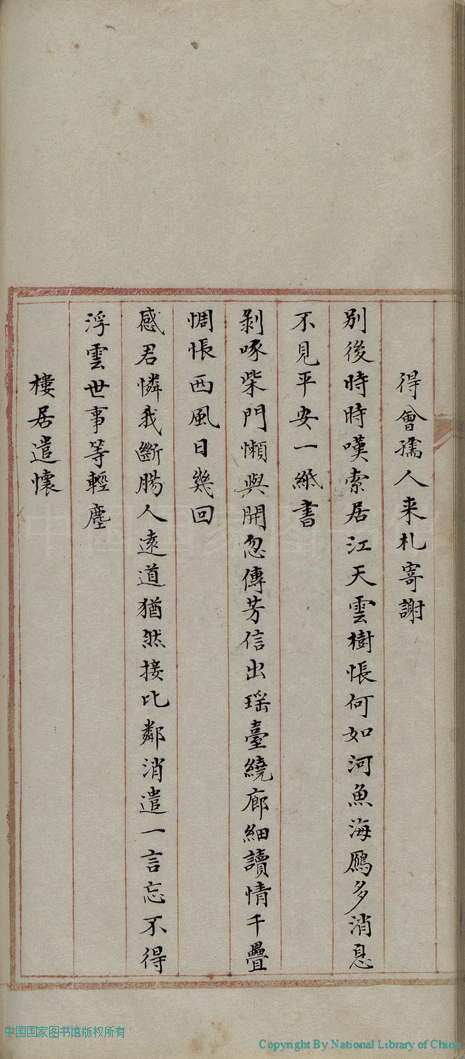 得曾孺人来札寄謝
別後時時嘆索居江天雲樹悵何如河魚海鴈多消息
不見平安一紙書
剝啄柴門懶與開忽傳芳信出瑶臺繞廊細讀情千疊
惆悵西風日幾回
感君憐我斷腸人遠道猶然接比鄰消遣一言忘不得
浮雲世事等輕塵
樓居遣懷
中国国家图书馆版权所有
Copyright By National Library of China